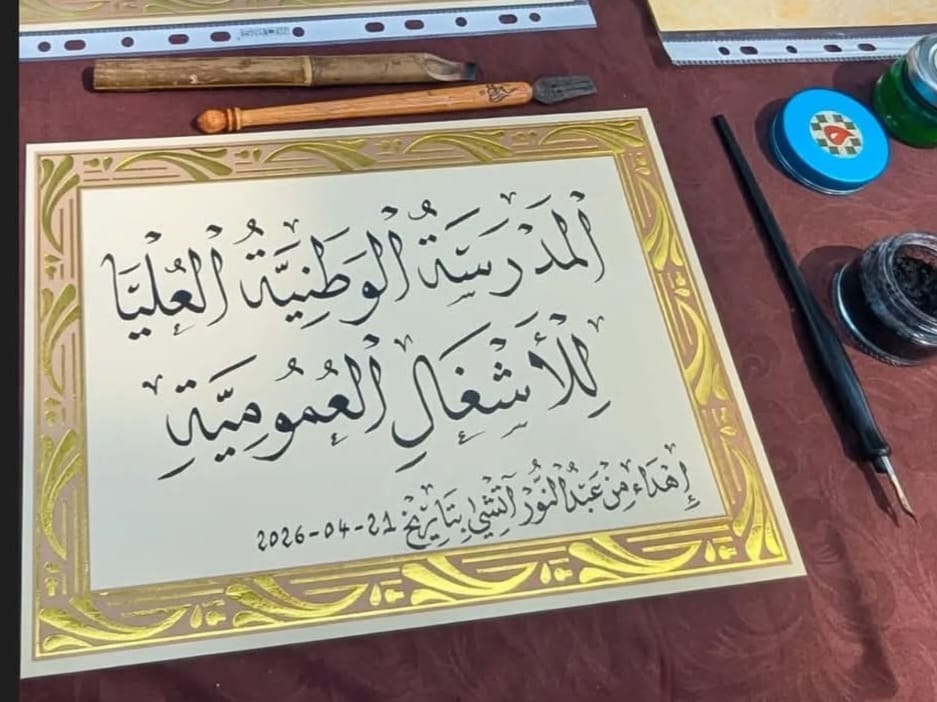 اَلْمَدْرَسَةُ الْوَطَنِيَّةُ الْعُلْيَا
لِلْأَشْغَالِ الْعُمُومِيَّةِ
إِهْدَاء مِنْ عَبْدُ النُّورْ آتْشِي بِتَارِيخْ 21-04-2026